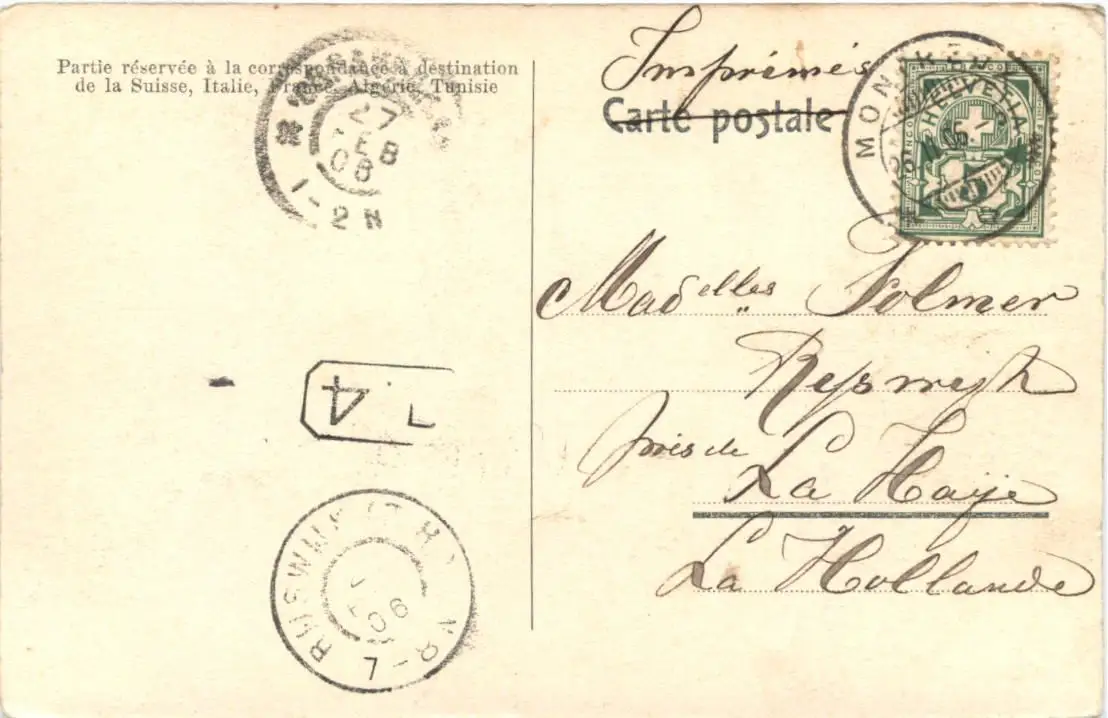 Partie réservée à la correspondance à destination
de la Suisse, Italie, France, Algérie, Tunisie
27
FEB
08
1-2N
Imprimés
Carte postale
HELVETIA
Mad^elles Folmer
Ryswyk
près de
La Haye
La Hollande
4
06
7-8N